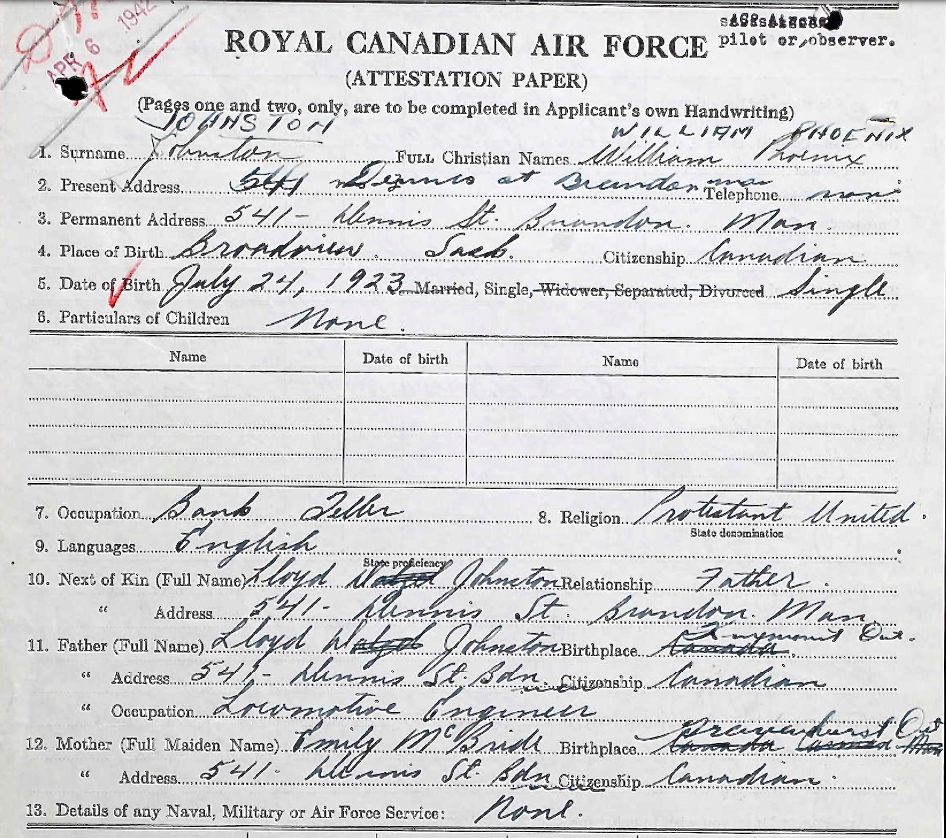 APR 6 1942
pilot or observer.
ROYAL CANADIAN AIR FORCE
(ATTESTATION PAPER)
(Pages one and two, only, are to be completed in Applicant's own Handwriting)
JOHNSTON WILLIAM PHOENIX
1. Surname Johnston FULL Christian Names William Phoenix
2. Present Address 541 Dennis st Brandon man Telephone none
3. Permanent Address 541 - Dennis St. Brandon. Man.
4. Place of Birth Broadview. Sask. Citizenship Canadian
5. Date of Birth July 24, 1923 Married, Single, Widower, Separated, Divorced Single
6. Particulars of Children None.
Name Date of birth Name Date of birth
7. Occupation Bank Teller 8. Religion Protestant United.
State denomination
9. Languages English
State proficiency
10. Next of Kin (Full Name) Lloyd Johnston Relationship Father.
" Address 541- Dennis St. Brandon. Man
11. Father (Full Name) Lloyd Johnston Birthplace Canada Ont.
" Address 541- Dennis St. Bdn. Citizenship Canadian
" Occupation Locomotive Engineer
12. Mother (Full Maiden Name) Emily McBride Birthplace Canada Gravenhurst Ont
" Address 541- Dennis St. Bdn Citizenship Canadian.
13. Details of any Naval, Military or Air Force Service: None.